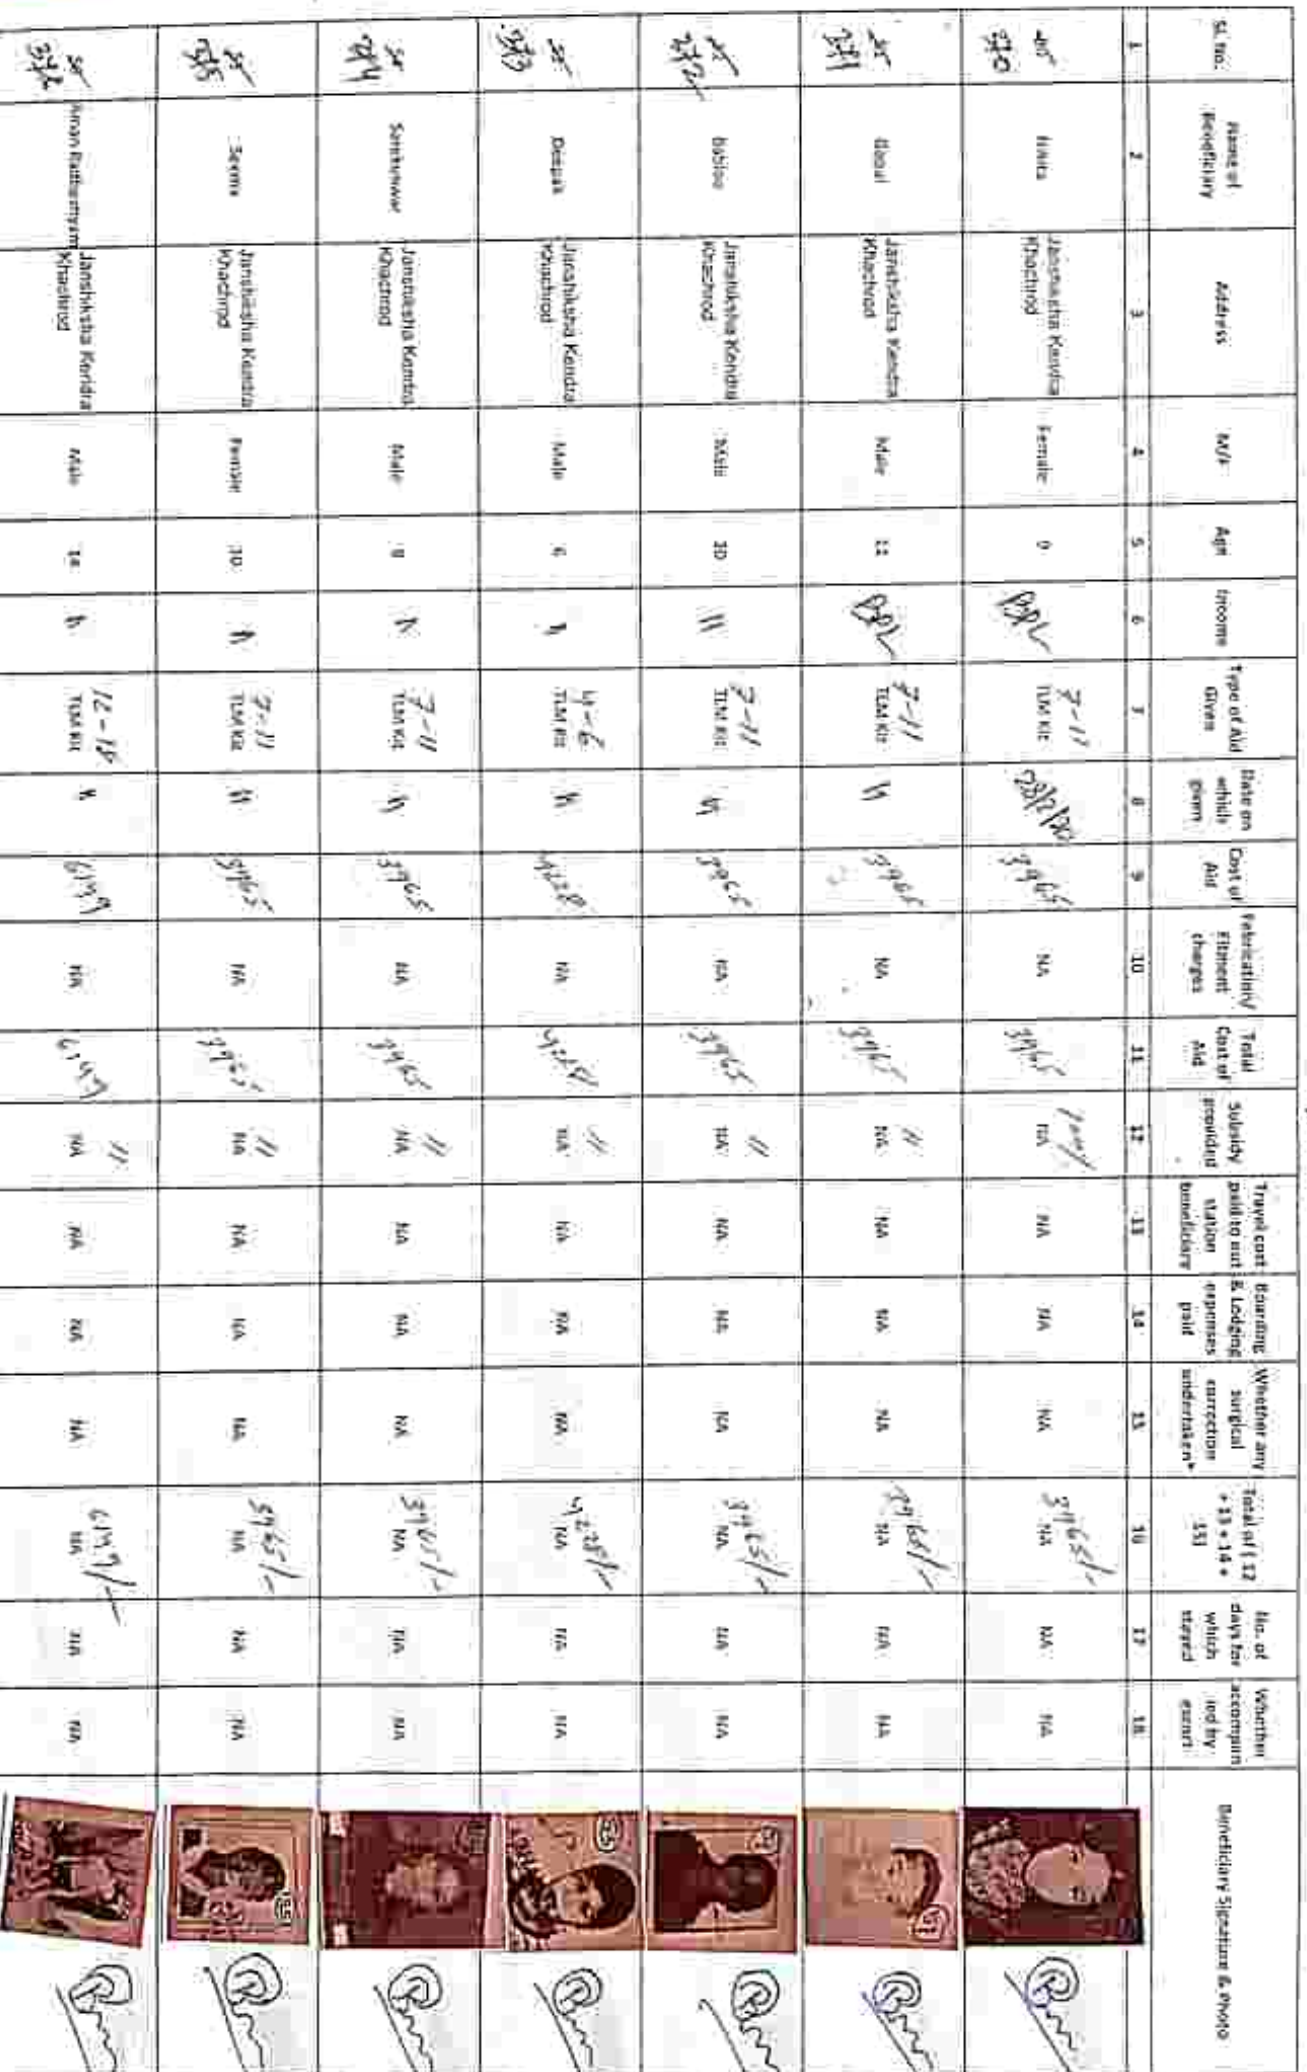 Sl. No. Name of Beneficiary Address M/F Age Income Type of Aid Given Date on which given Cost of Aid Fabrication/ Fitment charges Total Cost of Aid Subsidy provided Travel cost paid to out station beneficiary Boarding & Lodging expenses paid Whether any surgical correction undertaken* Total of ( 12 + 13 + 14 + 15) No. of days for which stayed Whether accompanied by escort Beneficiary Signature & Photo
1 2 3 4 5 6 7 8 9 10 11 12 13 14 15 16 17 18
370 Janshiksha Kendra Khachrod Female 9 BPL 7-11 TLM Kit 3965 NA 3965 100% NA NA NA NA 3965/- NA NA NA
371 Janshiksha Kendra Khachrod Male 11 BPL 7-11 TLM Kit 〃 3965 NA 3965 〃 NA NA NA NA 3965/- NA NA NA
372 Babloo Janshiksha Kendra Khachrod Male 10 〃 7-11 TLM Kit 〃 3965 NA 3965 〃 NA NA NA NA 3965/- NA NA NA
373 Deepak Janshiksha Kendra Khachrod Male 6 〃 4-6 TLM Kit 〃 4228 NA 4228 〃 NA NA NA NA 4228/- NA NA NA
374 Janshiksha Kendra Khachrod Male 〃 7-11 TLM Kit 〃 3965 NA 3965 〃 NA NA NA NA 3965/- NA NA NA
375 Seema Janshiksha Kendra Khachrod Female 10 〃 7-11 TLM Kit 〃 3965 NA 3965 〃 NA NA NA NA 3965/- NA NA NA
376 Aman Janshiksha Kendra Khachrod Male 〃 12-18 TLM Kit 〃 6149 NA 6149 〃 NA NA NA NA 6149/- NA NA NA